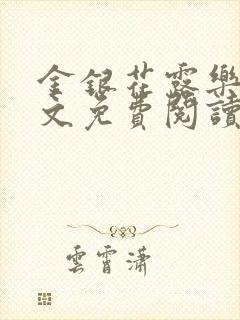 金銀花露樂
文免費閱讀
雲霄瀟